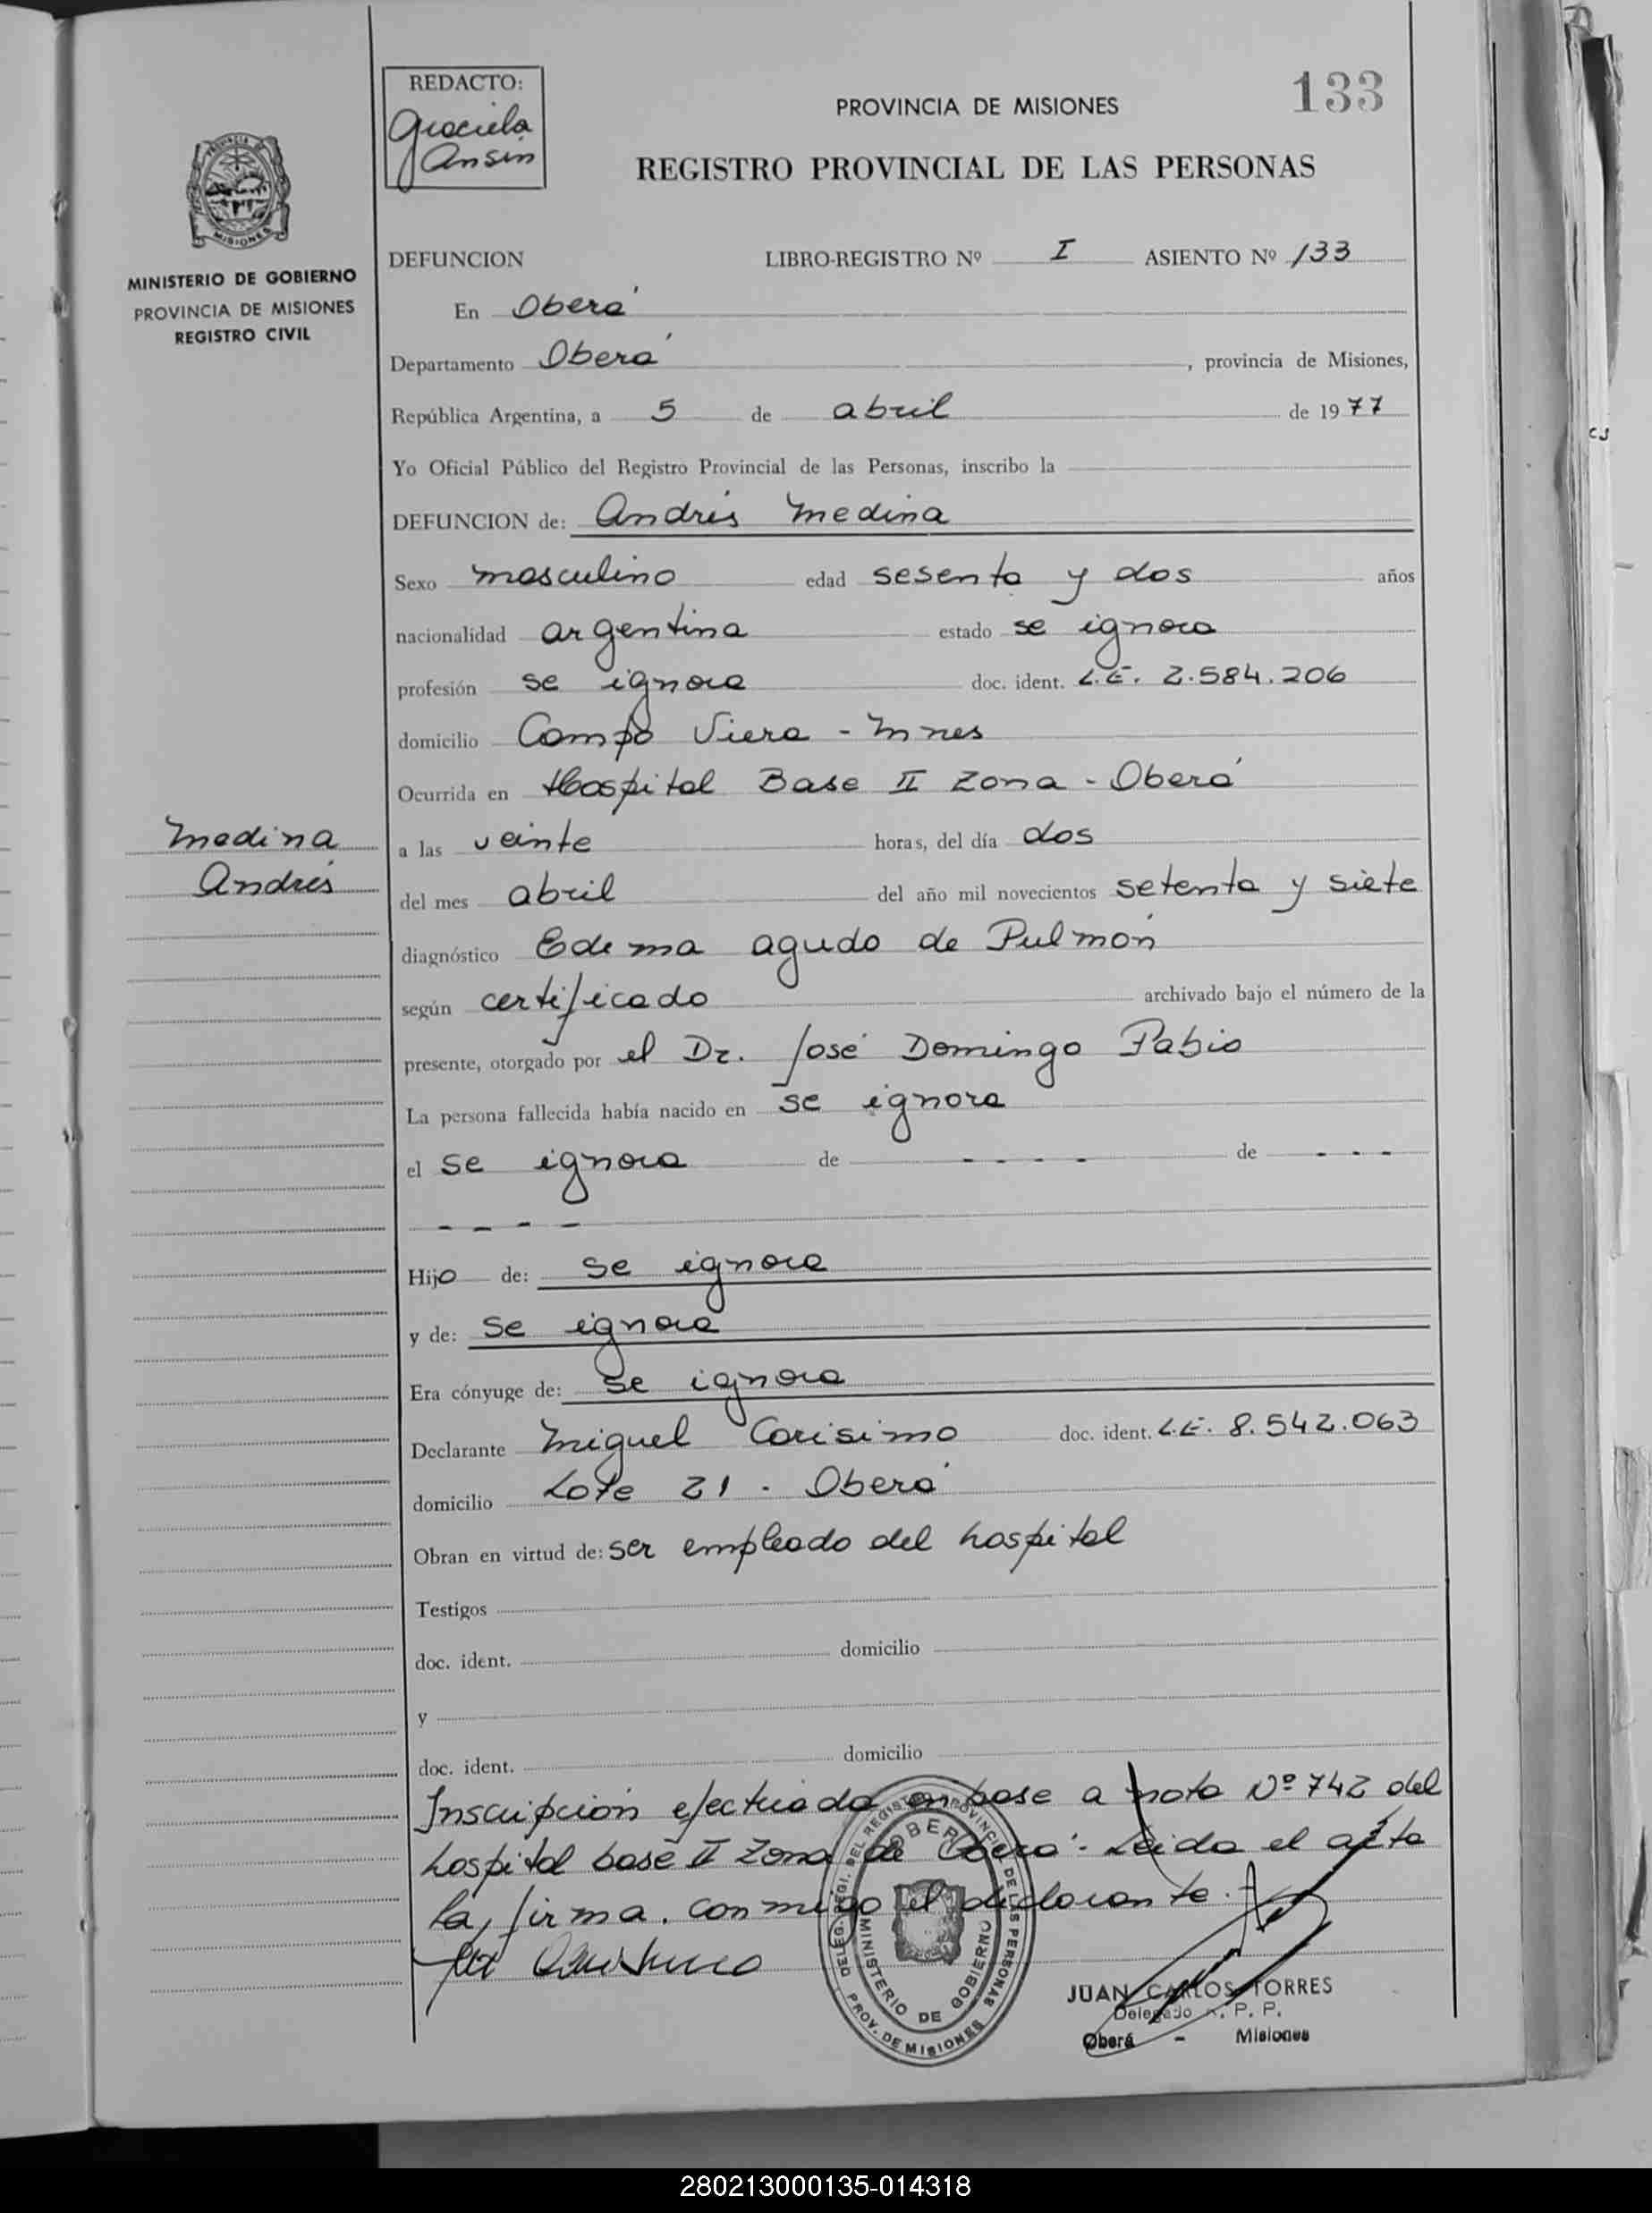 133
REDACTO:
Graciela
Ansin
PROVINCIA DE MISIONES
REGISTRO PROVINCIAL DE LAS PERSONAS
MISIONES
MINISTERIO DE GOBIERNO
PROVINCIA DE MISIONES
REGISTRO CIVIL
DEFUNCION LIBRO-REGISTRO Nº I ASIENTO Nº 133
En Oberá
Departamento Oberá, provincia de Misiones,
República Argentina, a 5 de abril de 1977
Yo Oficial Público del Registro Provincial de las Personas, inscribo la
DEFUNCION de: Andrés Medina
Sexo masculino edad sesenta y dos años
nacionalidad argentina estado se ignora
profesión se ignora doc. ident. L.E. 2.584.206
domicilio Campo Viera - Mnes
Ocurrida en Hospital Base II Zona - Oberá
Medina
Andrés
a las veinte horas, del día dos
del mes abril del año mil novecientos setenta y siete
diagnóstico Edema agudo de Pulmón
según certificado archivado bajo el número de la
presente, otorgado por el Dr. José Domingo Fabio
La persona fallecida había nacido en se ignora
el se ignora de - - - - de - - -
- - - -
Hijo de: se ignora
y de: se ignora
Era cónyuge de: se ignora
Declarante Miguel Carisimo doc. ident. L.E. 8.542.063
domicilio Lote 21 - Oberá
Obran en virtud de: ser empleado del hospital
Testigos
doc. ident. domicilio
y
doc. ident. domicilio
Inscripción efectuada en base a nota Nº 742 del
hospital base II Zona de Oberá - Leída el acta
la, firma. conmigo el declarante. -
DELEG. REGI. DEL REGISTRO PROVINCIAL DE LAS PERSONAS
PROV. DE MISIONES
OBERA
MINISTERIO DE GOBIERNO
JUAN CARLOS TORRES
Delegado R. P. P.
Oberá - Misiones
280213000135-014318